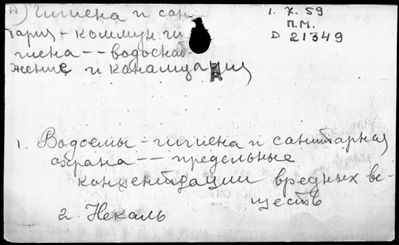 А) гигиена и сан-
тария - коммун. ги
гиена -- водоснаб-
жение и канализация
1. X. 59
П.М.
D 21349
1. Водоемы - гигиена и санитарная
охрана -- предельные
концентрации вредных ве-
ществ
2. Некаль